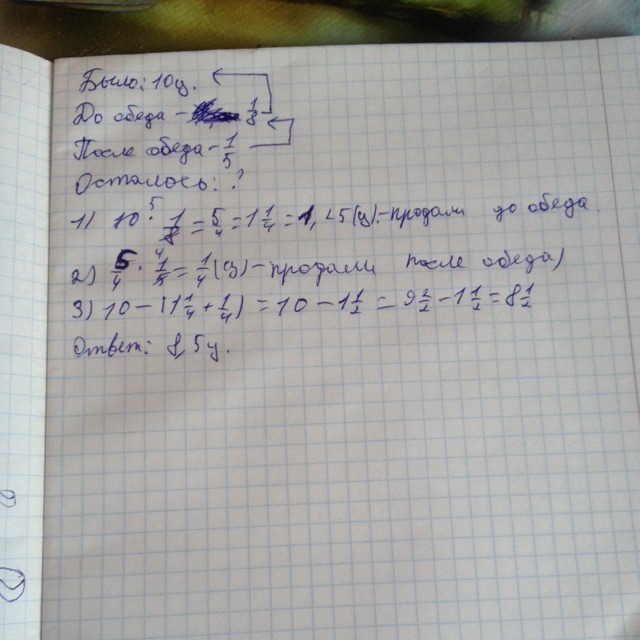 Было: 10 ц.
До обеда - 1/8
После обеда - 1/5
Осталось: ?
1) 10 5 · 1/8 4 = 5/4 = 1 1/4 = 1,25 (ц) - продали до обеда.
2) 5/4 · 1/5 = 1/4 (ц) - продали после обеда)
3) 10 - (1 1/4 + 1/4) = 10 - 1 1/2 = 9 2/2 - 1 1/2 = 8 1/2
Ответ: 8,5 ц.